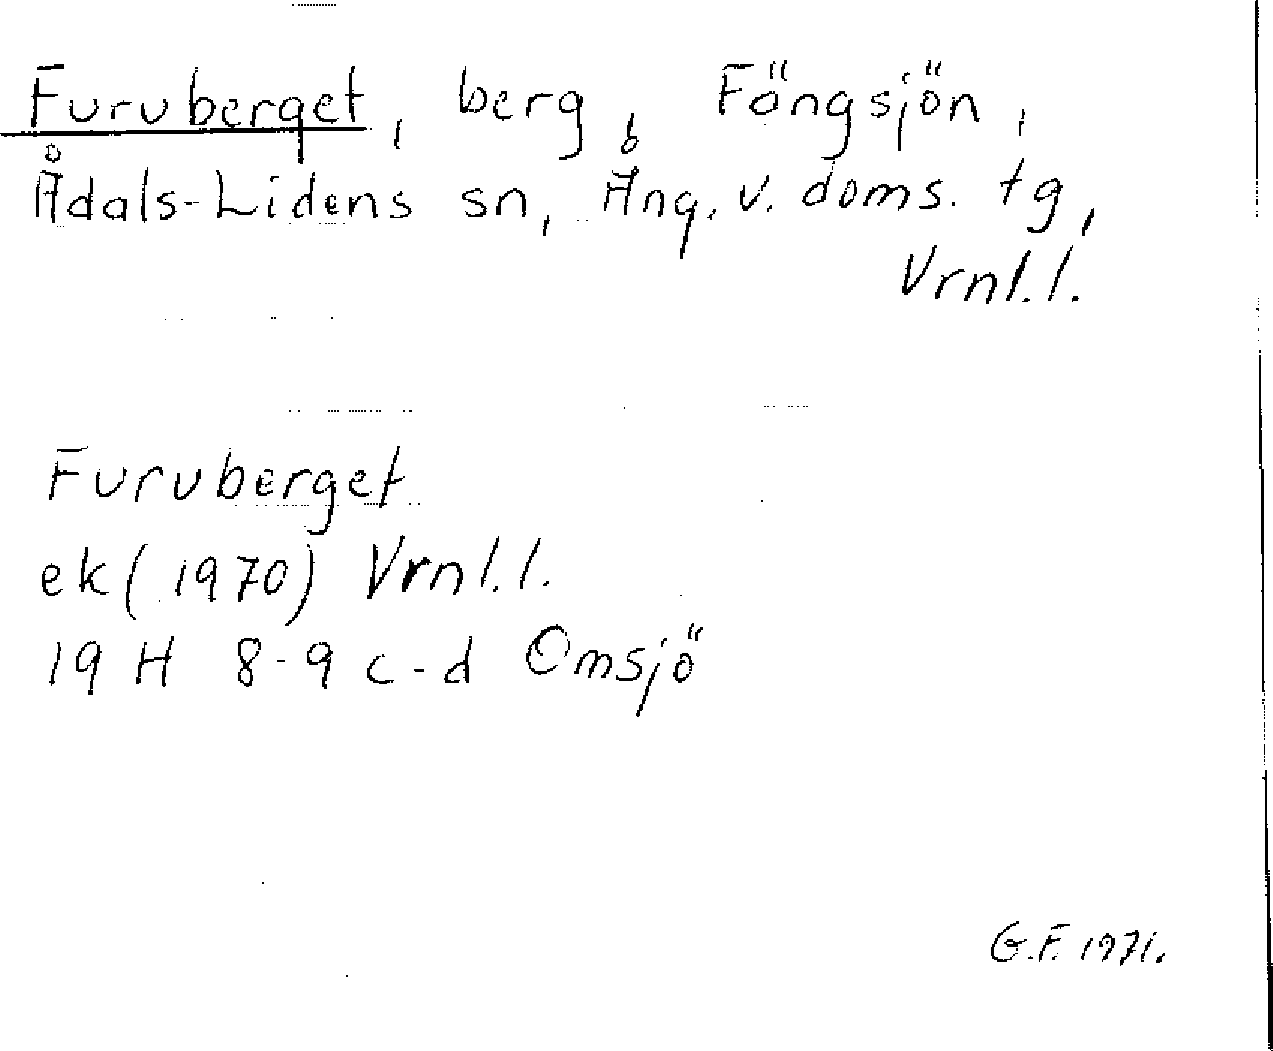 Furuberget, berg, Föngsjön,
Ådals-Lidens sn, Ång. v. doms. tg,
Vrnl.l.
Furuberget
ek (1970) Vrnl.l.
19 H 8-9 c-d Omsjö
G.F. 1971.